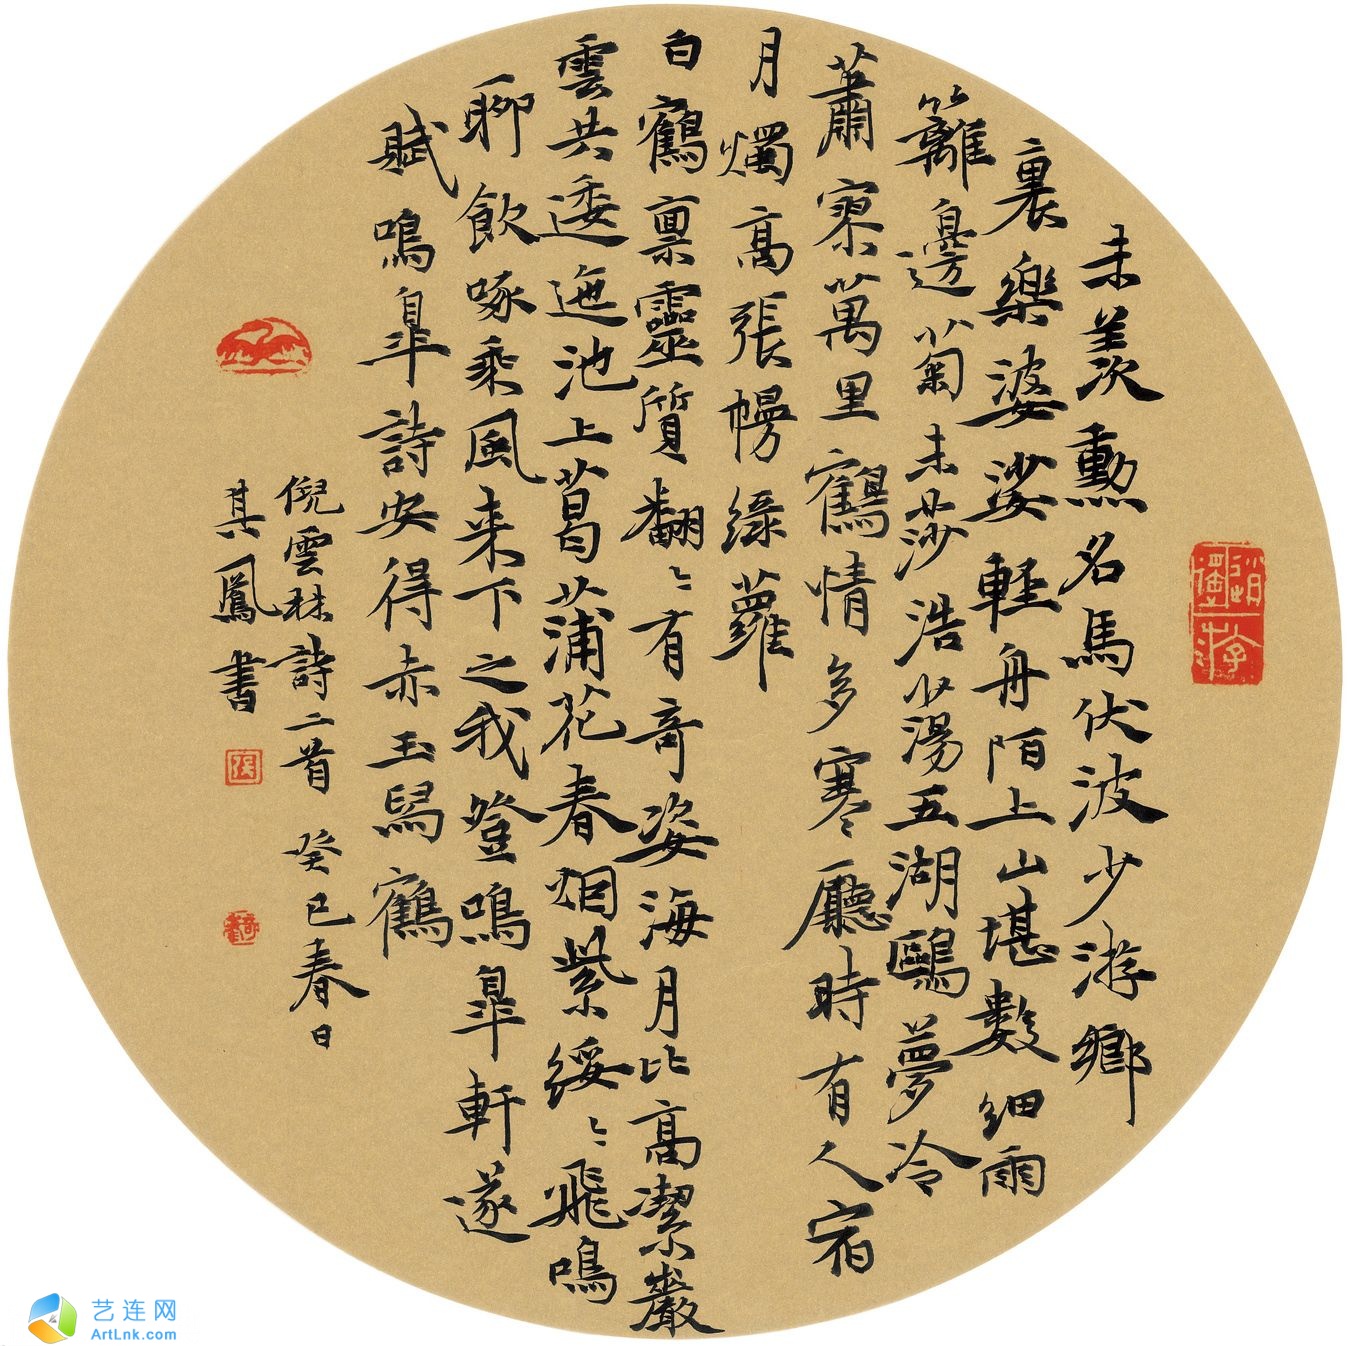 未羨勲名馬伏波少游鄉
裏樂婆娑輕舟陌上山堪數細雨
籬邊菊未莎浩蕩五湖鷗夢冷
蕭寥萬里鶴情多寒〻廳時有人宿
月燭高張幔綠蘿
白鶴稟靈質翻〻有奇姿海月比高潔巖
雲共逶迤池上菖蒲花春烟紫綬〻飛鳴
聊飲啄乘風来下之我登鳴臯軒遂
賦鳴臯詩安得赤玉舄鶴
倪雲林詩二首 癸巳春日
其鳳書
艺连网
ArtLnk.com